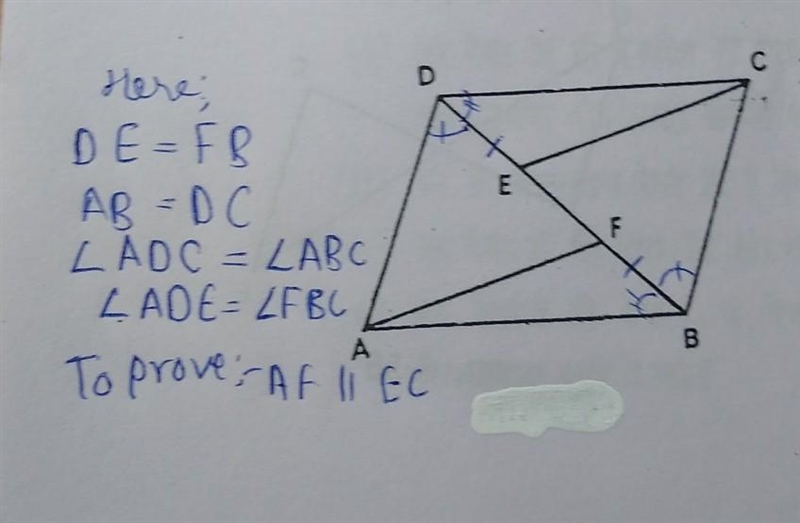 Here;
DE = FB
AB = DC
∠ADC = ∠ABC
∠ADE = ∠FBC
To prove:- AF || EC
D
C
E
F
A
B